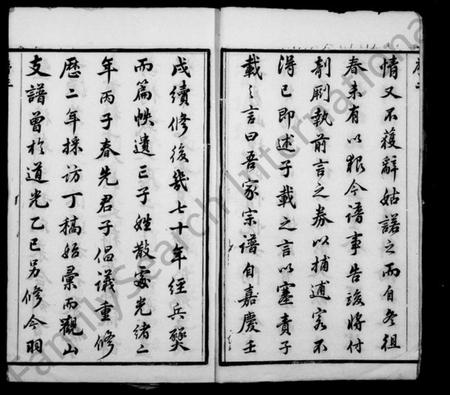 情又不獲辭姑諾之而自冬徂
春未有以報今譜事告竣將付
剞劂執前言之券以捕逋客不
得已即述子載之言以塞責子
載之言曰吾家宗譜自嘉慶壬
戌續修後幾七十年經兵燹
而篇帙遺亡子姓散處光緒二
年丙子春先君子倡議重修
歷二年採訪丁稿始彙而觀山
支譜曾於道光乙巳另修今明
FamilySearch International